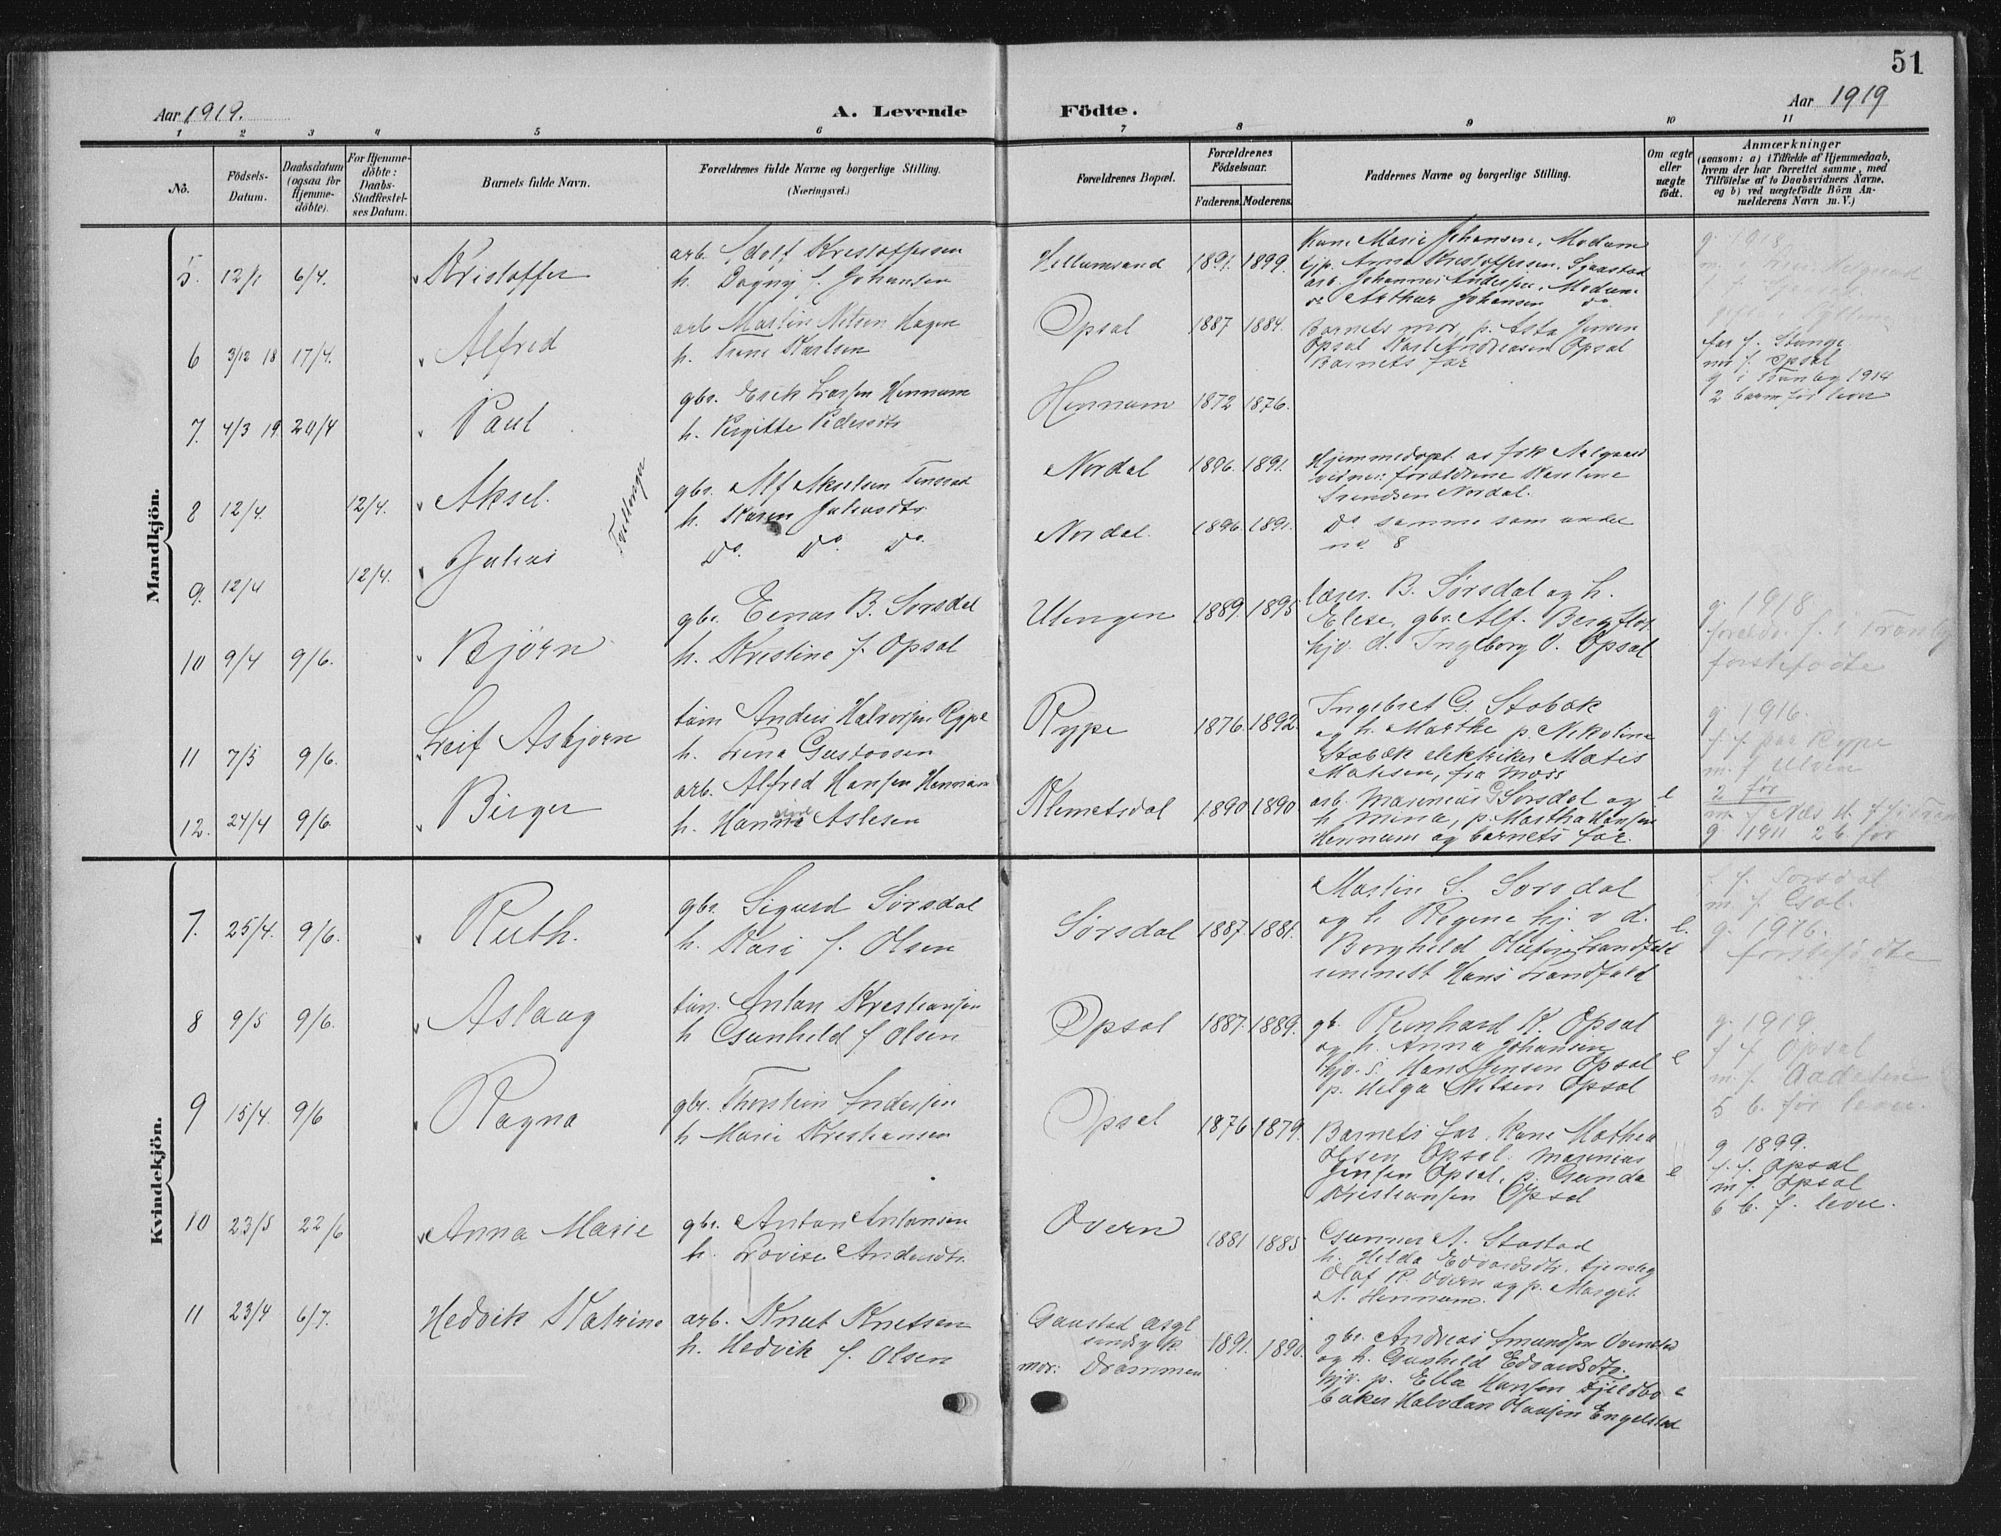 51
Aar 1919.
A. Levende
Födte.
Aar 1919
1 2 3 4 5 6 7 8 9 10 11
No.
Födsels-
Datum.
Daabsdatum
(ogsaa for
Hjemme-
döbte).
For Hjemme-
döbte:
Daabs-
Stadfæstel-
ses Datum.
Barnets fulde Navn.
Forældrenes fulde Navne og borgerlige Stilling.
(Næringsvei.)
Forældrenes Bopæl.
Forældrenes
Födselsaar.
Faderens. Moderens.
Faddernes Navne og borgerlige Stilling.
Om ægte
eller
uægte
födt.
Anmærkninger
(saasom: a) i Tilfælde af Hjemmedaab,
hvem der har forrettet samme, med
Tilföielse af to Daabsvidners Navne,
og b) ved uægtefödte Börn An-
melderens Navn m. V.)
Mandkjön.
5. 12/1 6/4. Kristoffer
arb. Adolf Kristoffersen
h. Dagny f. Johansen
1891. 1899.
Kone Marie Johansen, Modum
hjp. Anna Kristoffersen,
arb. Johannes Andersen, Modum
do Arthur Johansen do
g. 1918
6 3/12 18 17/4. Alfred
arb. Martin Nilsen Hagen
h. Trine Karlsen
Opsal 1887 1884.
Barnets mor, p. Asta Jensen
Opsal Karl Andreasen Opsal
Barnets far
far f. Stange
mor f. Opsal
g. i Tranby 1914
2 barn før lever
7. 4/3 19. 20/4 Paul
gbr. Erik Larsen Hennum
h. Birgitte Pedersdtr
Hennum 1872 1876.
8 12/4. 12/4. Aksel. Tvillinger
gbr. Alf Akselsen
h. Karen Juliusdtr.
Nordal 1896. 1891.
Hjemmedøpt av frk
vidner: forældrene Karoline
Svendsen Nordal.
9. 12/4 12/4. Julius
Do. Do. Do.
Nordal. 1896. 1891.
Do samme som under
no. 8
10 9/4 9/6. Bjørn
gbr. Einar B. Sørsdal
h. Kristine f. Opsal
Utengen 1889. 1895
læser. B. Sørsdal og h.
Elise, gbr. Alf. Bergflot
hjv. d. Ingeborg O. Opsal
g. 1918
foreldr. f. i Tranby
førstefødte
11 7/5 9/6. Leif Asbjørn
tøm Anders Halvorsen Rype
h. Lina Gustavsen
Rype 1876. 1892.
Ingebret G. Stobæk
og h. Marthe p. Nikoline
Stobæk elektriker Matis
Matisen, fra Moss
g. 1916.
f. f. paa Rype
m. f. Ulven
2 før
12. 24/4 9/6. Birger
arb. Alfred Hansen Hennum
h. Hanna Aslesen
Klemetsdal 1890 1890
arb. Marenius G. Sørsdal og
h Mina, p. Martha Hansen
Hennum og barnets far.
e
g. 1911 2 b. før
Kvindekjön.
7. 25/4. 9/6. Ruth.
gbr. Sigurd Sørsdal
h. Kari f. Olsen
Sørsdal 1887. 1881.
Martin S. Sørsdal
og h. Regine hj. v d.
Borghild
seminist Hans
e.
f. f. Sørsdal
m. f.
g. 1916.
førstefødte
8 9/5 9/6. Aslaug
tøm. Anton Kristiansen
h Gunhild f Olsen
Opsal 1887. 1889.
gb. Reinhard K. Opsal
og h. Anna Johansen
hjv. s. Hans Jensen Opsal
p. Helga Nilsen Opsal
e
g. 1919
f. f. Opsal
m. f.
5 b. før lever.
9 15/4. 9/6 Ragna
gbr. Thorstein Andersen
h Marie Kristiansen
Opsal 1876 1879.
Barnets far, Kone Mathea
Olsen Opsal. Marenius
Jensen Opsal, p. Gunda
Kristiansen Opsal
e
g 1899.
f. f. Opsal
m f. Opsal
6 b. f. lever.
10 23/5 22/6 Anna Marie
gbr. Anton Antonsen
h. Lovise Andersdtr.
Overn 1881 1885
Gunnar A. Stastad
h. Hilda Edvardsdtr. tjenstg
Olaf K. Overn og p. Marget
A. Hennum.
11 23/4 6/7. Hedvik Katrine
arb. Knut Knutsen
h. Hedvik f. Olsen
Gaustad asyl
sindsyk
mor: Drammen
1891. 1890.
gbr. Andreas Amundsen
og h. Gunhild Edvardsdtr.
hjv. p. Ella Hansen Fjeldbo
baker Halvdan Olausen Engelstad
e